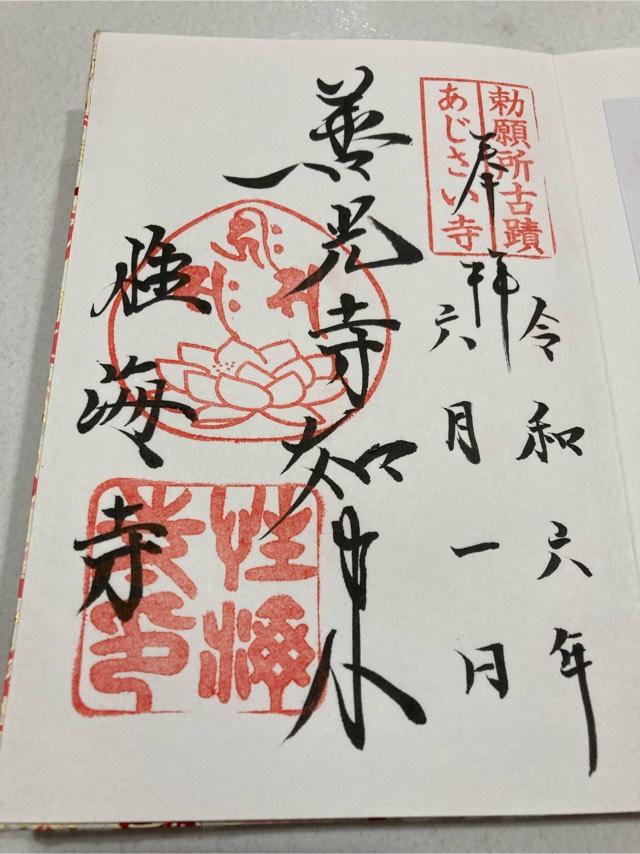 勅願所古蹟
あじさい寺
奉拝
令和六年
六月一日
善光寺如来
性海寺